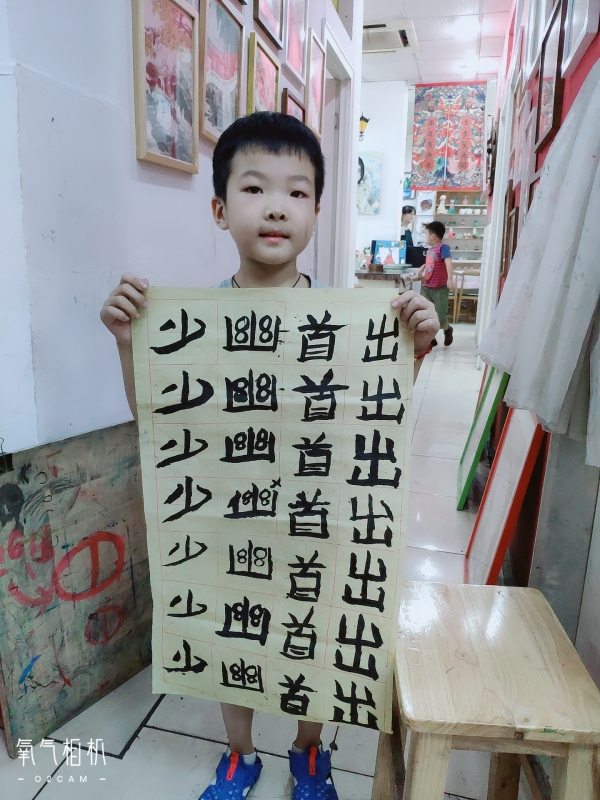 出出出出出出出
首首首首首首首
幽幽幽幽幽幽幽
少少少少少少少
氧气相机
– O2CAM –